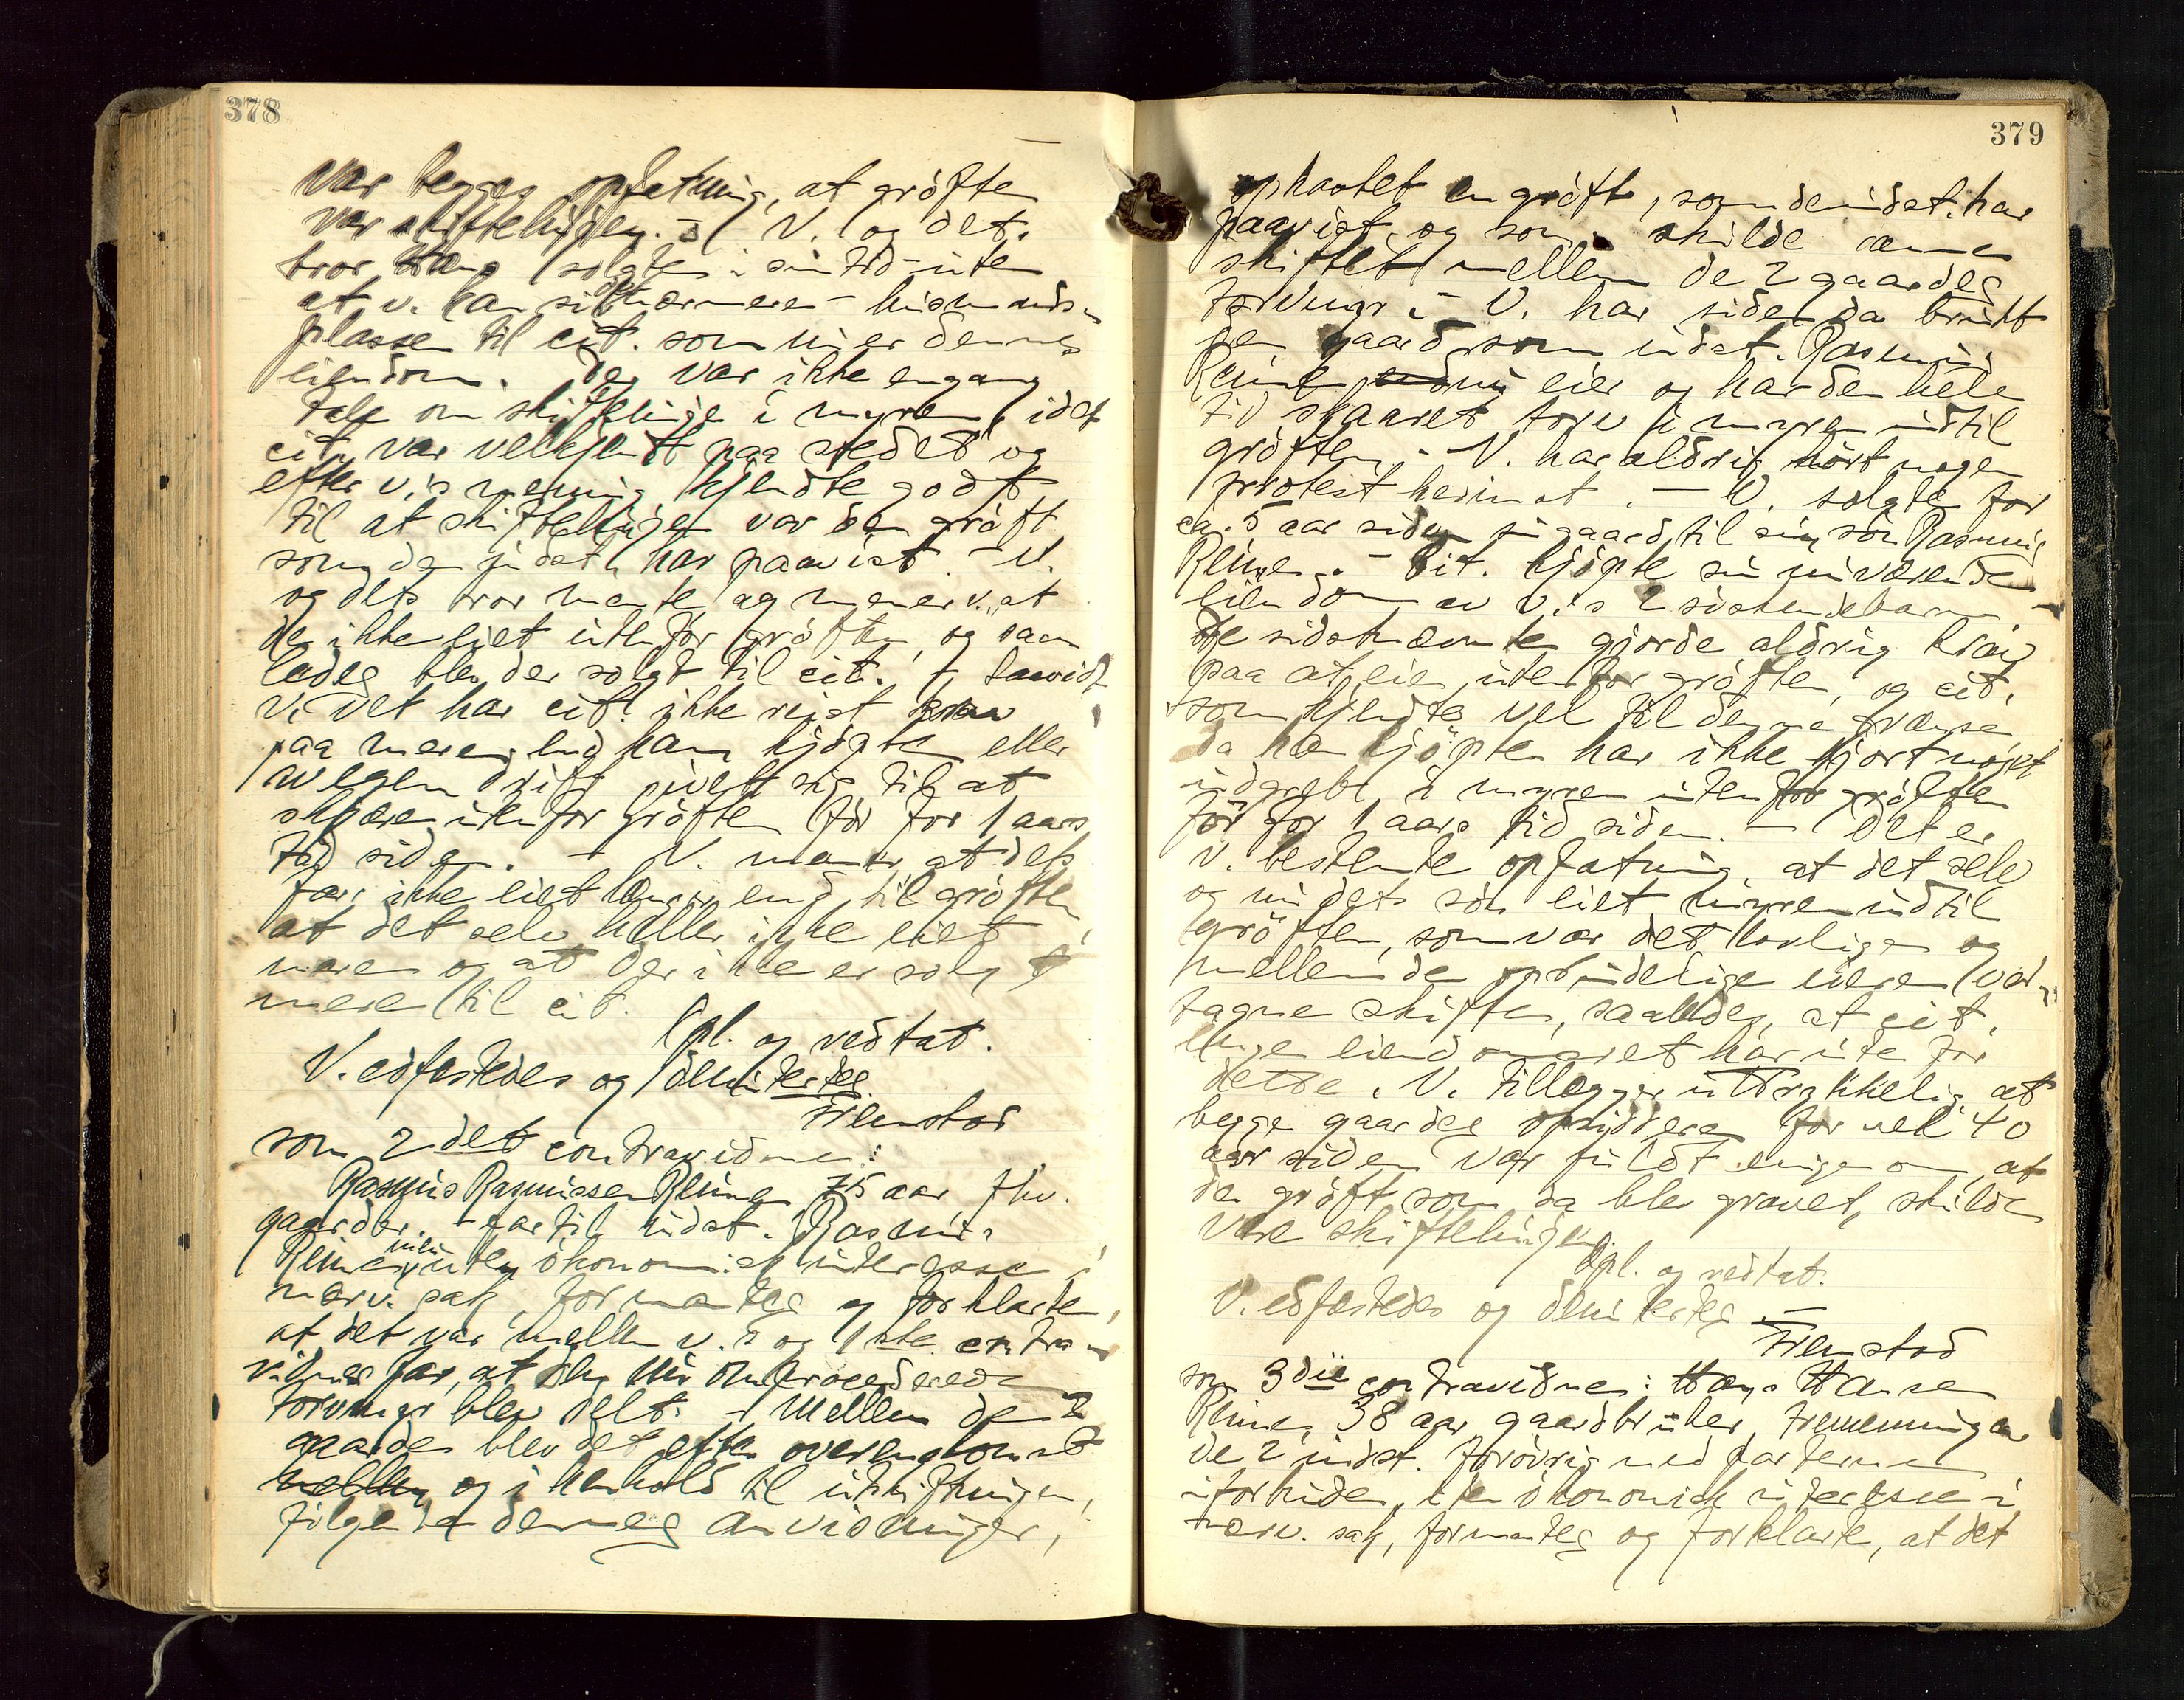 378
var begges opfatning, at gröften
var skiftelinjen. - V. og dets
bror Hans solgte i sin tid - uten
at v. kan si det nærmere - husmands-
plassen til cit. som nu er dennes
eiendom. Der var ikke engang
tale om skiftelinje i myren, idet
cit. var velkjendt paa stedet og
efter v.s mening kjendte godt
til at skiftelinjen var den gröft
som de indst. har paavist. - V.
og dets bror mente og mener v. at
de ikke eiet utenfor gröften, og saa-
ledes blev der solgt til cit. - Saavidt
v. vet har cit. ikke reist krav
paa mere end ham kjöpte eller
av egen drift givet sig til at
skjære utenfor gröften för for 1 aars
tid siden. - V. mener at dets
far ikke eiet længer end til gröften
at det selv heller ikke eiet
mere og at der ikke er solgt
mere til cit.
Opl. og vedtat.
V. edfæstedes og demitertes
Fremstod
som 2det contravidne:
Rasmus Rasmussen Reime 75 aar fhv.
gaardbr. - far til indst. Rasmus
Reime, men uten ökonomisk interesse i
nærv. sak, formantes og forklarte,
at det var mellem v.s og 1ste contra-
vidnes far, at den nu omprocederede
torvmyr blev delt. - Mellem de 2
gaarder blev det efter overenskomst
og i henhold til utskiftningen,
fölgende dennes anvisninger,
379
opkastet en gröft, som de indst. har
paavist og som skulde danne
skiftet mellem de 2 gaardes
torvmyr. - V. har siden da brukt
den gaard som indst. Rasmus
Reime nu eier og har den hele
tid skaaret torv i myren indtil
gröften. - V. har aldrig hört nogen
protest herimot. - V. solgte for
ca. 5 aar siden sin gaard til sin sön Rasmus
Reime. - Cit. kjöpte sin nuværende
eiendom av v.s 2 söskendebarn.
De sidstnævnte gjorde aldrig krav
paa at eie utenfor gröften, og cit.
som kjendte vel til denne grænse
da han kjöpte har ikke gjort noget
indgrep i myren utenfor gröften
för for 1 aars tid siden. - Det er
v. bestemte opfatning, at det selv
og nu dets sön eiet myren indtil
gröften, som var det lovlige og
mellem de oprindelige eiere ved-
tagne skifte, saaledes, at cit.
ingen eiendomsret har utenfor
dette. V. tillægger uttrykkelig at
begge gaardes opsiddere for vel 40
aar siden var fuldt enige om, at
den gröft som da blev gravet, skulde
være skiftelinjen.
Opl. og vedtat.
V. edfæstedes og demitertes
Fremstod
som 3die contravidne: Hans Hansen
Reime, 38 aar, gaardbruker, tremenning av
de 2 indst. forövrig med parterne
uforbunden, uten ökonomisk interesse i
nærv. sak, formantes og forklarte, at det